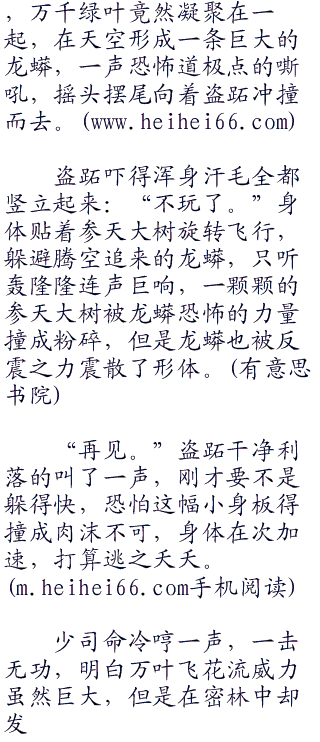 ，万千绿叶竟然凝聚在一
起，在天空形成一条巨大的
龙蟒，一声恐怖道极点的嘶
吼，摇头摆尾向着盗跖冲撞
而去。(www.heihei66.com)
盗跖吓得浑身汗毛全都
竖立起来：“不玩了。”身
体贴着参天大树旋转飞行，
躲避腾空追来的龙蟒，只听
轰隆隆连声巨响，一颗颗的
参天大树被龙蟒恐怖的力量
撞成粉碎，但是龙蟒也被反
震之力震散了形体。(有意思
书院)
“再见。”盗跖干净利
落的叫了一声，刚才要不是
躲得快，恐怕这幅小身板得
撞成肉沫不可，身体在次加
速，打算逃之夭夭。
(m.heihei66.com手机阅读)
少司命冷哼一声，一击
无功，明白万叶飞花流威力
虽然巨大，但是在密林中却
发